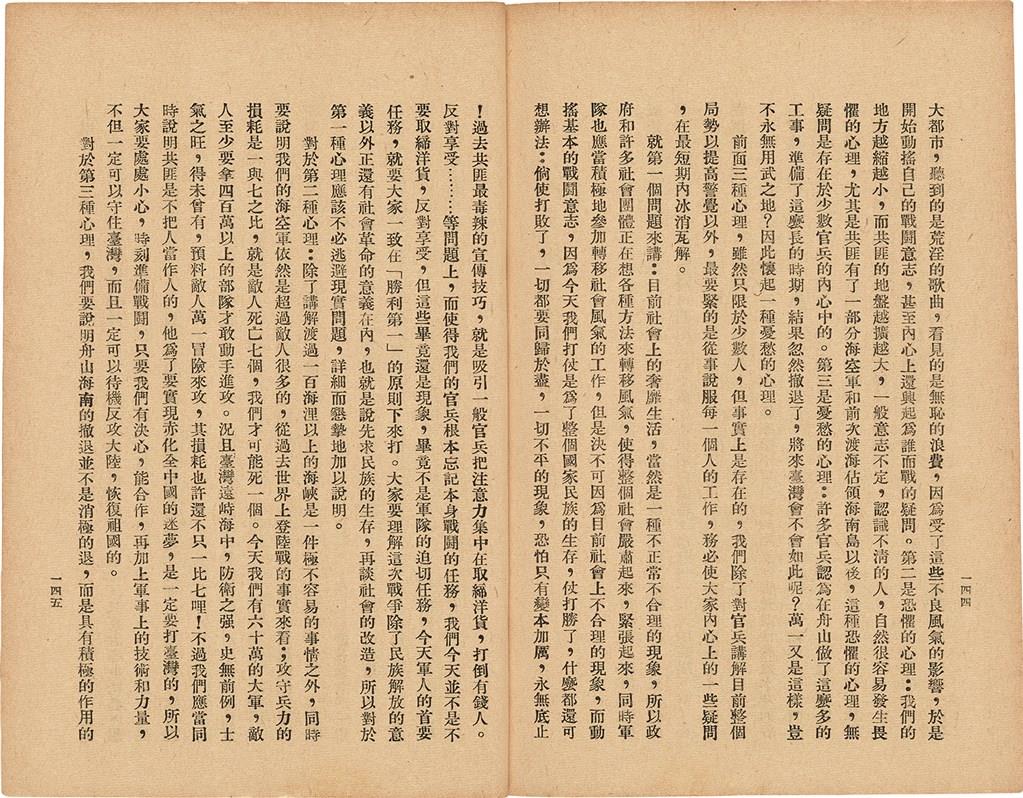 大都市，聽到的是荒淫的歌曲，看見的是無恥的浪費，因為受了這些不良風氣的影響，於是
開始動搖自己的戰鬪意志，甚至內心上還興起為誰而戰的疑問。第二是恐懼的心理：我們的
地方越縮越小，而共匪的地盤越擴越大，一般意志不定，認識不清的人，自然很容易發生畏
懼的心理，尤其是共匪有了一部分海空軍和前次渡海佔領海南島以後，這種恐懼的心理，無
疑問是存在於少數官兵的內心中的。第三是憂愁的心理：許多官兵認為在舟山做了這麼多的
工事，準備了這麼長的時期，結果忽然撤退了，將來臺灣會不會如此呢？萬一又是這樣，豈
不永無用武之地？因此懷起一種憂愁的心理。
前面三種心理，雖然只限於少數人，但事實上是存在的，我們除了對官兵講解目前整個
局勢以提高警覺以外，最要緊的是從事說服每一個人的工作，務必使大家內心上的一些疑問
，在最短期內冰消瓦解。
就第一個問題來講：目前社會上的奢靡生活，當然是一種不正常不合理的現象，所以政
府和許多社會團體正在想各種方法來轉移風氣，使得整個社會嚴肅起來，緊張起來，同時軍
隊也應當積極地參加轉移社會風氣的工作，但是決不可因為目前社會上不合理的現象，而動
搖基本的戰鬪意志，因為今天我們打仗是為了整個國家民族的生存，仗打勝了，什麼都還可
想辦法：倘使打敗了，一切都要同歸於盡，一切不平的現象，恐怕只有變本加厲，永無底止
一四四
！過去共匪最毒辣的宣傳技巧，就是吸引一般官兵把注意力集中在取締洋貨，打倒有錢人。
反對享受……等問題上，而使得我們的官兵根本忘記本身戰鬪的任務，我們今天並不是不
要取締洋貨，反對享受，但這些畢竟還是現象，畢竟不是軍隊的迫切任務，今天軍人的首要
任務，就要大家一致在「勝利第一」的原則下來打。大家要理解這次戰爭除了民族解放的意
義以外正還有社會革命的意義在內，也就是說先求民族的生存，再談社會的改造，所以對於
第一種心理應該不必逃避現實問題，詳細而懇摯地加以說明。
對於第二種心理：除了講解渡過一百海浬以上的海峽是一件極不容易的事情之外，同時
要說明我們的海空軍依然是超過敵人很多的，從過去世界上登陸戰的事實來看；攻守兵力的
損耗是一與七之比，就是敵人死亡七個，我們才可能死一個。今天我們有六十萬的大軍，敵
人至少要拿四百萬以上的部隊才敢動手進攻。況且臺灣遠峙海中，防衛之強，史無前例，士
氣之旺，得未曾有，預料敵人萬一冒險來攻，其損耗也許還不只一比七哩！不過我們應當同
時說明共匪是不把人當作人的，他為了要實現赤化全中國的迷夢，是一定要打臺灣的，所以
大家要處處小心，時刻準備戰鬪，只要我們有決心，能合作，再加上軍事上的技術和力量，
不但一定可以守住臺灣，而且一定可以待機反攻大陸，恢復祖國的。
對於第三種心理，我們要說明舟山海南的撤退並不是消極的退，而是具有積極的作用的
一四五